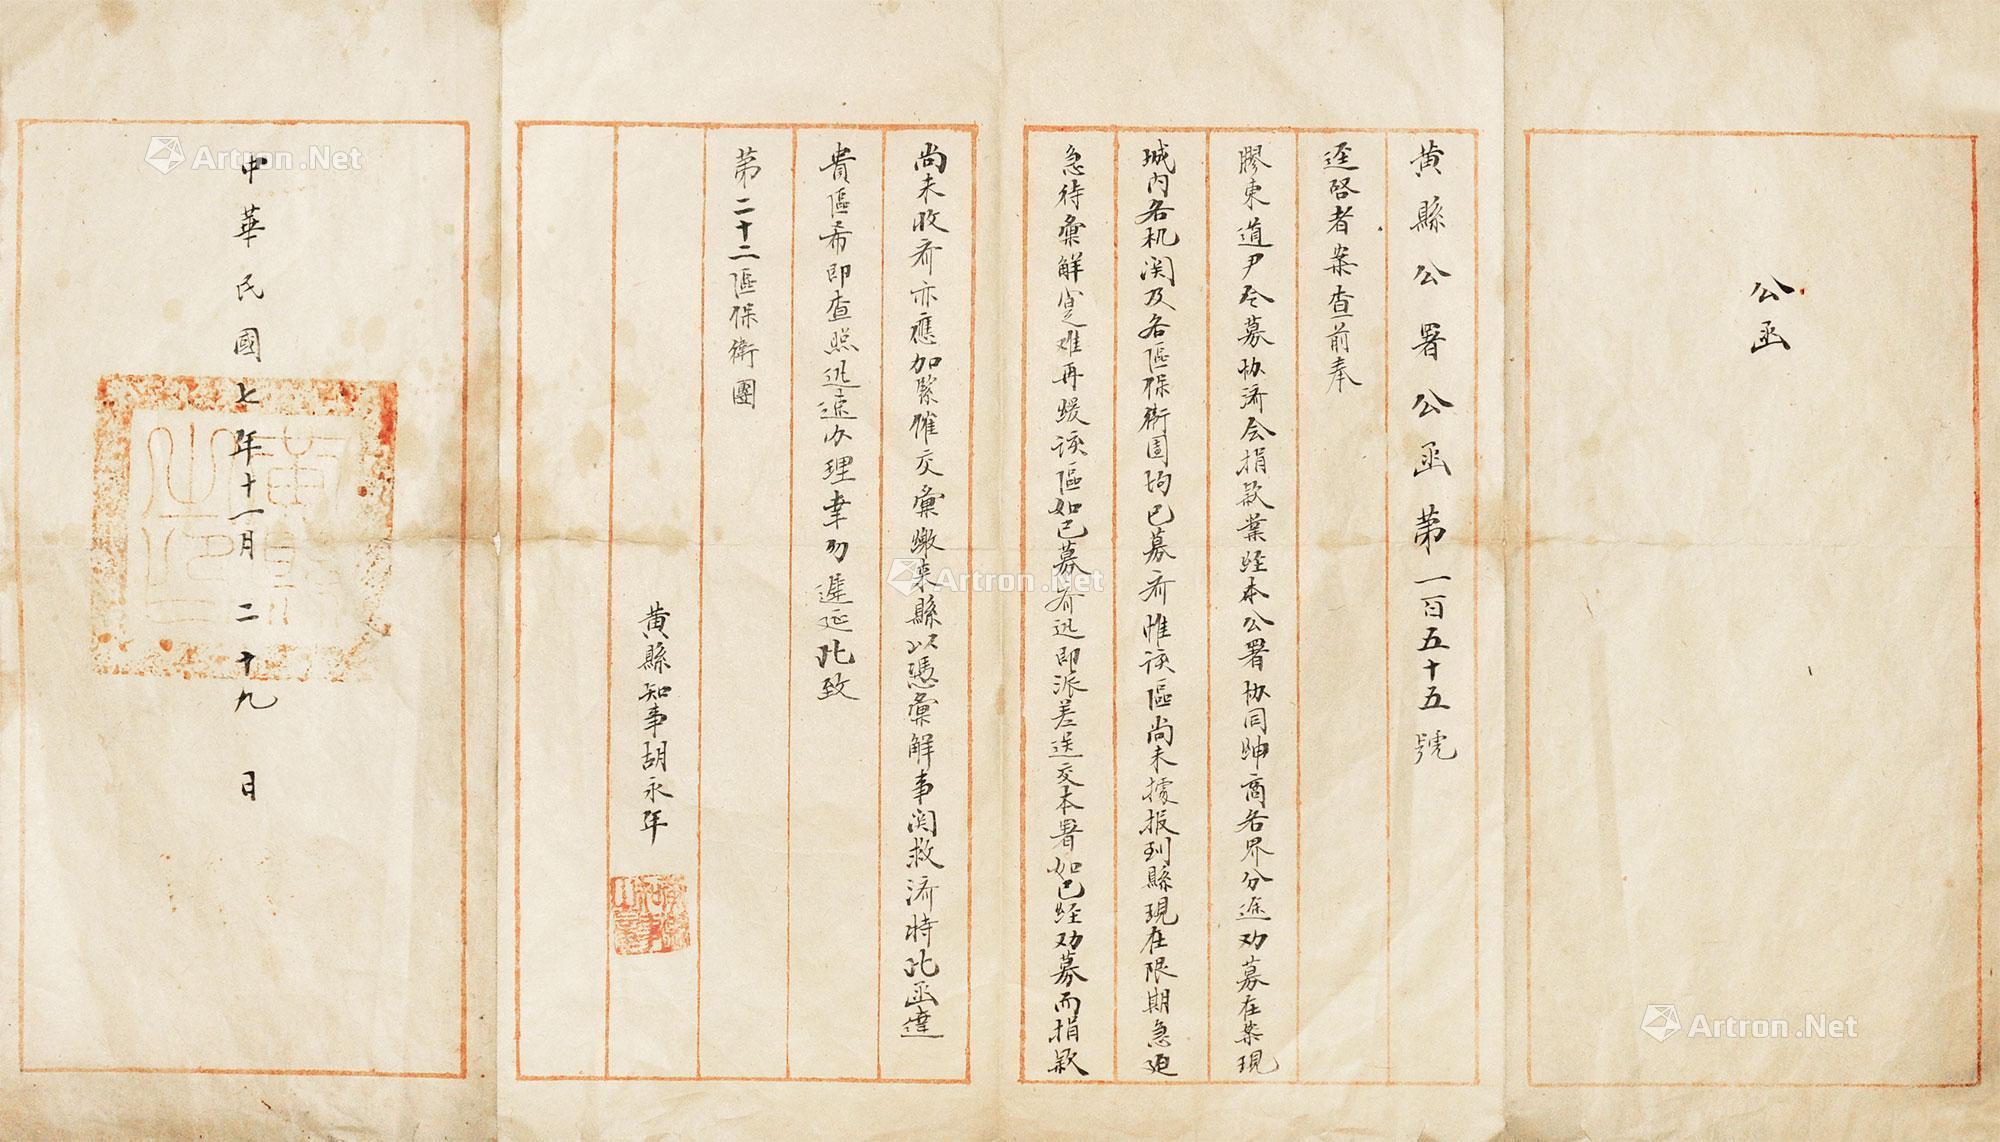 公函
黄縣公署公函第一百五十五號
逕啓者案查前奉
膠東道尹令募协济会捐款業经本公署协同紳商各界分途劝募在案現
城内各机関及各區保衛團均已募齐惟该區尚未據报到縣現在限期急迫
急待彙解寔难再緩该區如已募齐迅即派差送交本署如已经劝募而捐款
尚未收齐亦應加緊催交彙繳来縣以憑彙解事関救济特此函達
貴區希即查照迅速办理幸勿遲延此致
第二十二區保衛團
黄縣知事胡永年
中華民國七年十一月二十九日
黄縣之印
Artron.Net
Artron.Net
Artron.Net